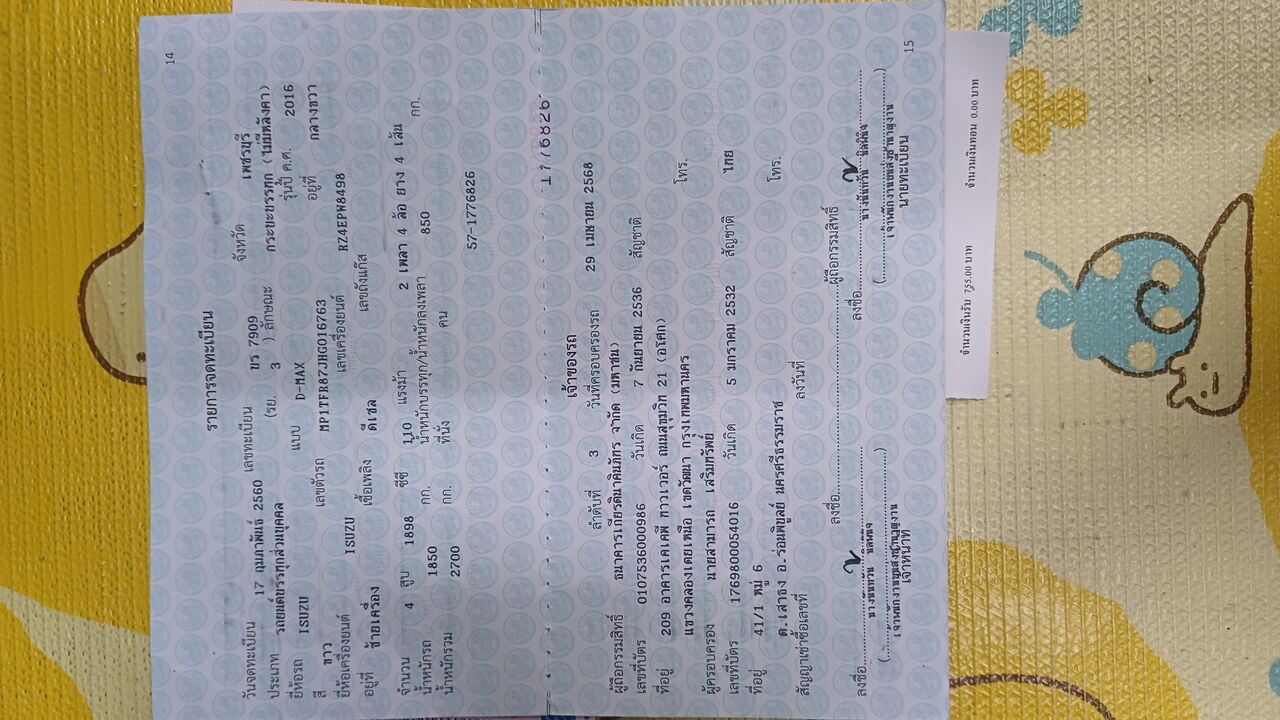 14
รายการจดทะเบียน
วันจดทะเบียน 17 กุมภาพันธ์ 2560 เลขทะเบียน ขร 7909 จังหวัด เพชรบุรี
ประเภท รถยนต์บรรทุกส่วนบุคคล (รย. 3 ) ลักษณะ กระบะบรรทุก (ไม่มีหลังคา)
ยี่ห้อรถ ISUZU แบบ D-MAX รุ่นปี ค.ศ. 2016
สี ขาว เลขตัวรถ MP1TFR87JHG016763 อยู่ที่ กลางขวา
ยี่ห้อเครื่องยนต์ ISUZU เลขเครื่องยนต์ RZ4EPW8498
อยู่ที่ ซ้ายเครื่อง เชื้อเพลิง ดีเซล เลขถังแก๊ส
จำนวน 4 สูบ 1898 ซีซี 110 แรงม้า 2 เพลา 4 ล้อ ยาง 4 เส้น
น้ำหนักรถ 1850 กก. น้ำหนักบรรทุก/น้ำหนักลงเพลา 850 กก.
น้ำหนักรวม 2700 กก. ที่นั่ง คน
57-1776826
1776826
เจ้าของรถ
ลำดับที่ 3 วันที่ครอบครองรถ 29 เมษายน 2568
ผู้ถือกรรมสิทธิ์ ธนาคารเกียรตินาคินภัทร จำกัด (มหาชน)
เลขที่บัตร 0107536000986 วันเกิด 7 กันยายน 2536 สัญชาติ
ที่อยู่ 209 อาคารเคเคพี ทาวเวอร์ ถนนสุขุมวิท 21 (อโศก) โทร.
แขวงคลองเตยเหนือ เขตวัฒนา กรุงเทพมหานคร
ผู้ครอบครอง นายสามารถ เสริมทรัพย์
เลขที่บัตร 1769800054016 วันเกิด 5 มกราคม 2532 สัญชาติ ไทย
ที่อยู่ 41/1 หมู่ 6 โทร.
ต.เสาธง อ.ร่อนพิบูลย์ นครศรีธรรมราช
สัญญาเช่าซื้อเลขที่ ลงวันที่
ลงชื่อ ผู้ถือกรรมสิทธิ์
ลงชื่อ ลงชื่อ
เจ้าหน้าที่ นายทะเบียน
15
จำนวนเงินรับ 755.00 บาท จำนวนเงินทอน 0.00 บาท